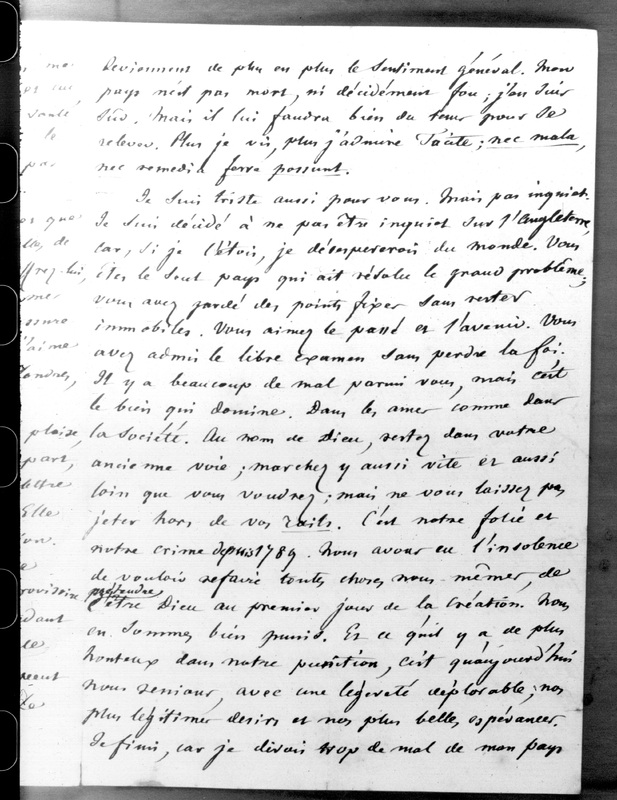 deviennent de plus en plus le sentiment général. Mon
pays n'est pas mort, ni décidément fou; j'en suis
sûr. Mais il lui faudra bien du tems pour se
relever. Plus je vis, plus j'admire Tacite; nec mala,
nec remedia ferre possunt.
Je suis triste aussi pour vous. Mais pas inquiet.
Je suis décidé à ne pas être inquiet sur l'Angleterre,
car, si je l'étois, je désespererois du monde. Vous
êtes le seul pays qui ait résolu le grand problême;
vous avez gardé des points fixes sans rester
immobiles. Vous aimez le passé et l'avenir. Vous
avez admis le libre examen sans perdre la foi.
Il y a beaucoup de mal parmi vous, mais c'est
le bien qui domine. Dans les ames comme dans
la société. Au nom de Dieu, restez dans votre
ancienne voie; marchez y aussi vite et aussi
loin que vous voudrez; mais ne vous laissez pas
jeter hors de vos rails. C'est notre folie et
notre crime depuis 1789. Nous avons eu l'insolence
de vouloir refaire toutes choses nous-mêmes, de
prétendre
être Dieu au premier jour de la Création. Nous
en sommes bien punis. Et ce qu'il y a de plus
honteux dans notre punition, c'est qu'aujourd'hui
nous renions, avec une légereté déplorable, nos
plus légitimes desirs et nos plus belles espérances.
Je finis, car je dirois trop de mal de mon pays